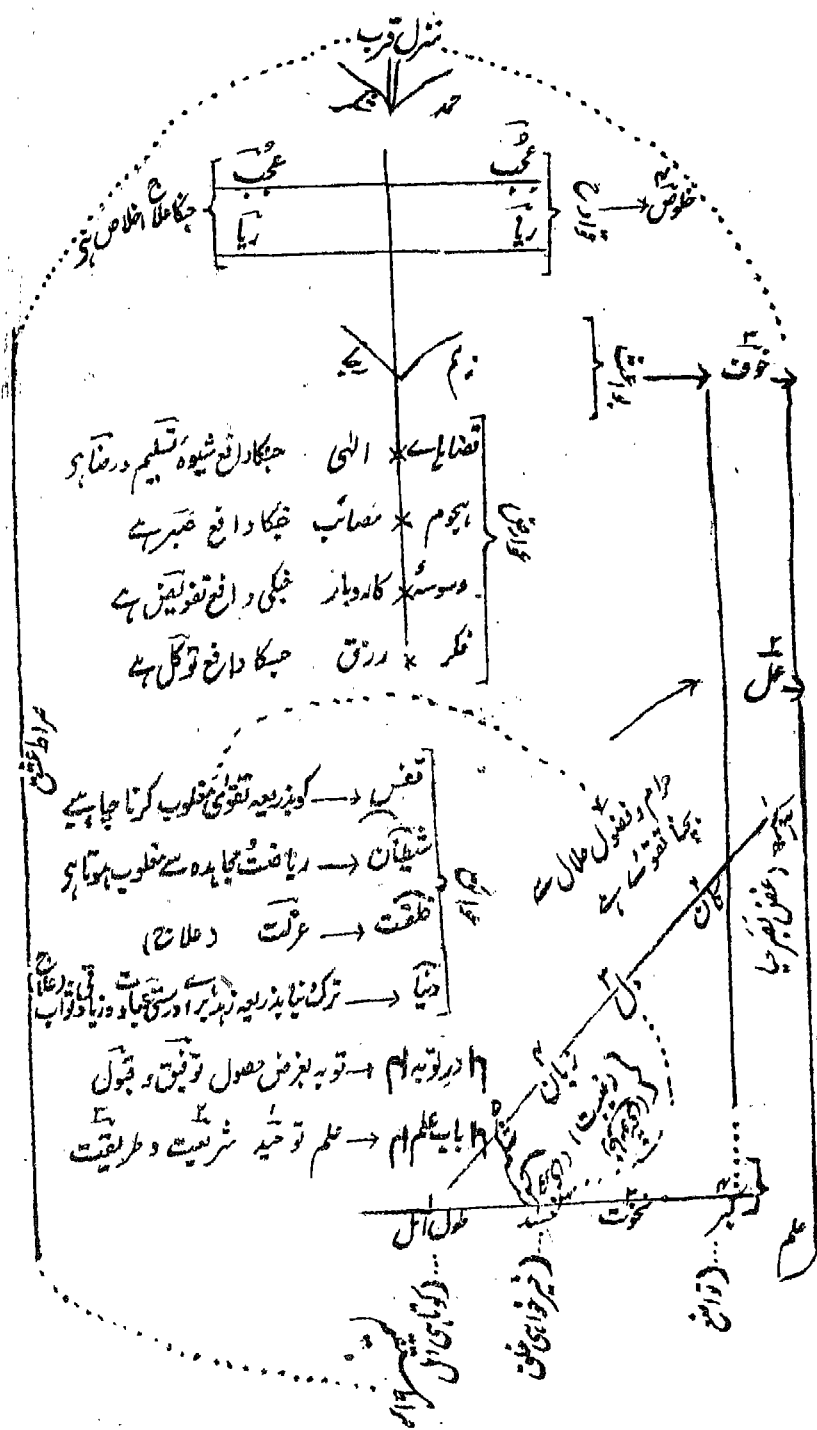 منزل قرب
حمد شکر
عجب عجب
ریا ریا
قوادح
خلوص
جنکا علاج اخلاص ہے
خوف
بیم
قضاہائے الٰہی جسکا دافع شیوہ تسلیم و رضا ہے
ہجوم مصائب جسکا دافع صبر ہے
وسوسۂ کاروبار جسکی دافع تفویض ہے
فکر رزق جسکا دافع توکل ہے
عوارض
عمل
صراط عشق
نفس کو بذریعہ تقویٰ مغلوب کرنا چاہیے
شیطان ریاضت مجاہدہ سے مغلوب ہوتا ہے
خلقت عزلت (علاج)
دنیا ترک دنیا بذریعہ زہد برائے درستی عبادت و زیادتی ثواب (علاج)
عوائق
حرام و فضول حلال سے
بچنا تقوےٰ ہے
در توبہ توبہ بغرض حصول توفیق و قبول
باب علم علم توحید شریعت و طریقت
کان
دل
زبان
(غیبت)
طول امل
حسد
نخوت
کبر
علم
(کوتاہی امل
(خیر خواہی خلق
(تواضع